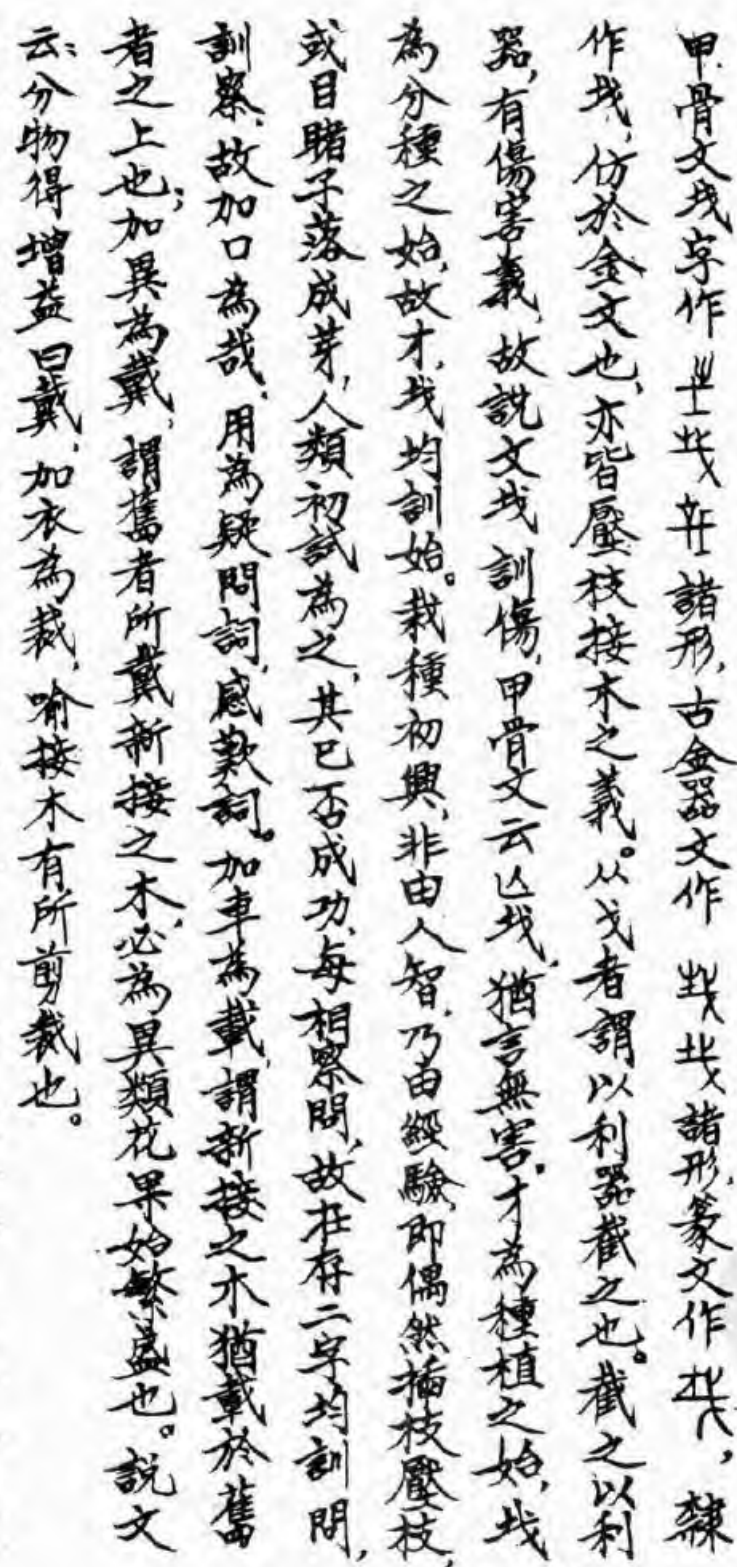 甲骨文𢦏字作諸形,古金器文作諸形,篆文作𢦏,隸
作𢦏,仿於金文也,亦皆壓枝接木之義。从戈者謂以利器截之也。截之以利
器,有傷害義,故說文𢦏訓傷,甲骨文云亾𢦏,猶言無害。才為種植之始,𢦏
為分種之始,故才,𢦏均訓始。栽種初興,非由人智,乃由經驗,即偶然插枝壓枝,
或目睹子落成芽,人類初試為之,其已否成功,每相察問,故在存二字均訓問,
訓察,故加口為哉,用為疑問詞,感歎詞。加車為載,謂新接之木猶載於舊
者之上也;加異為戴,謂舊者所戴新接之木,必為異類花果始繁盛也。說文
云:分物得增益曰戴,加衣為裁,喻接木有所剪裁也。